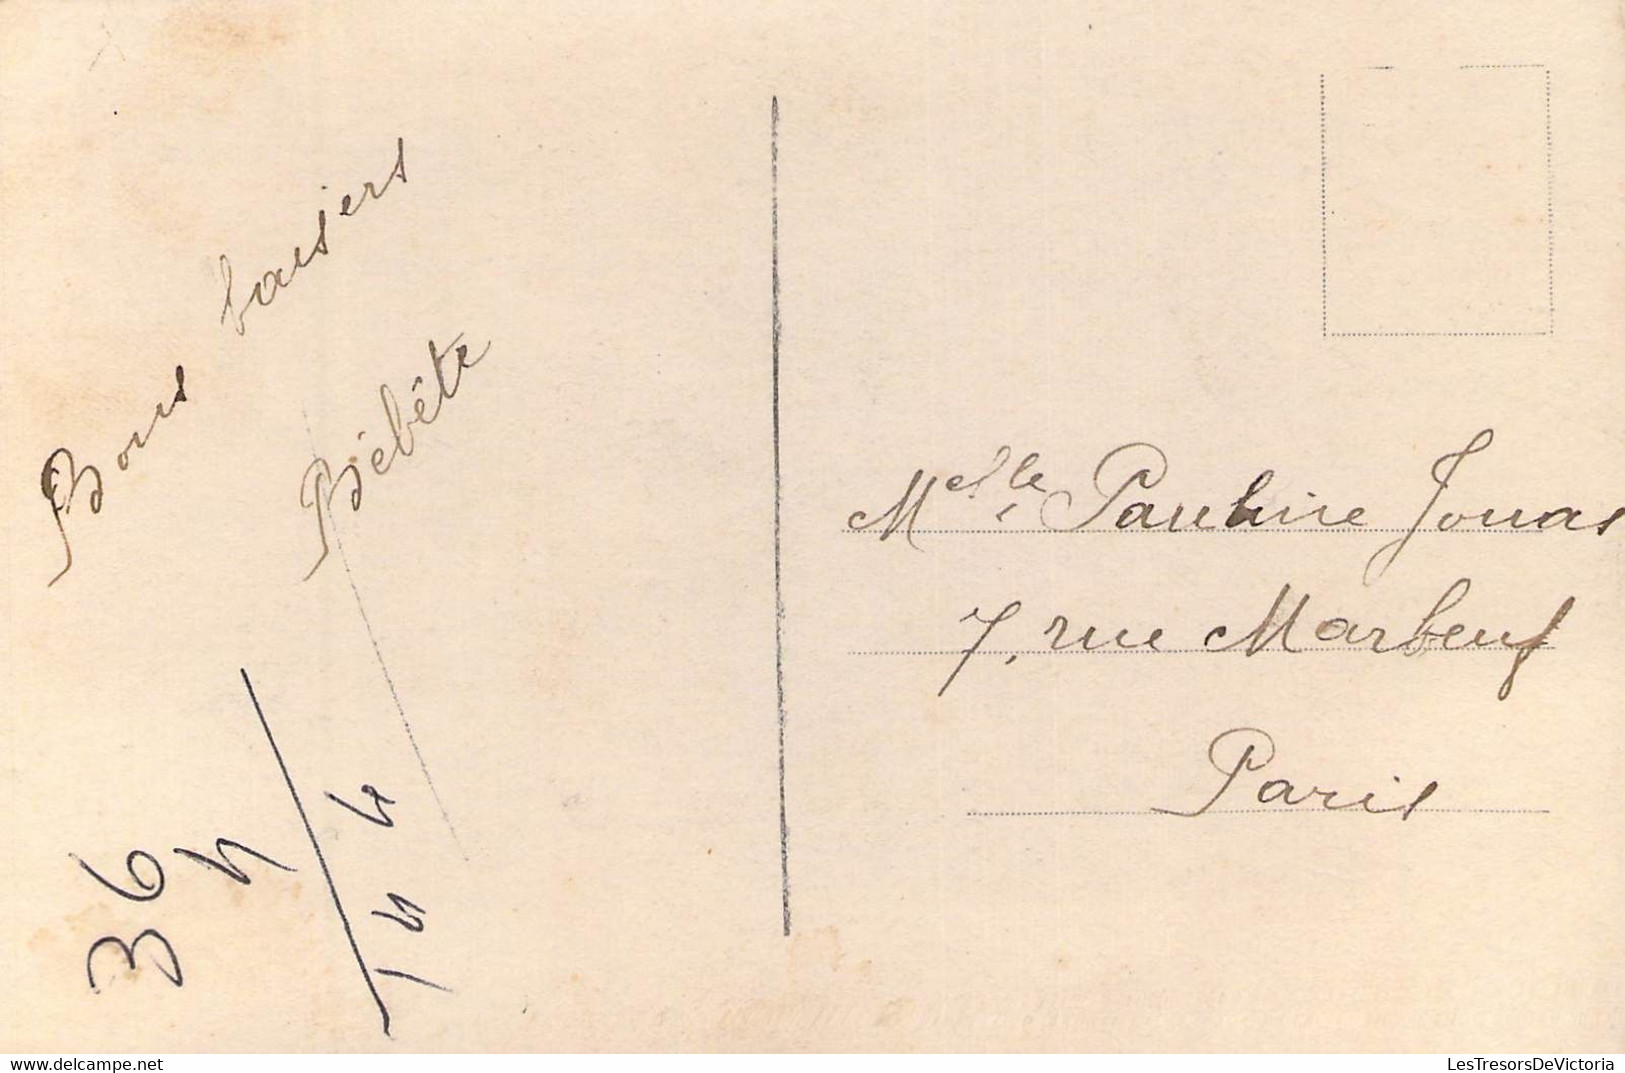 Bons baisers
Bébête
36
4
144
Melle Pauline Jouas
7, rue Marbeuf
Paris
delcampe.net
LesTresorsDeVictoria